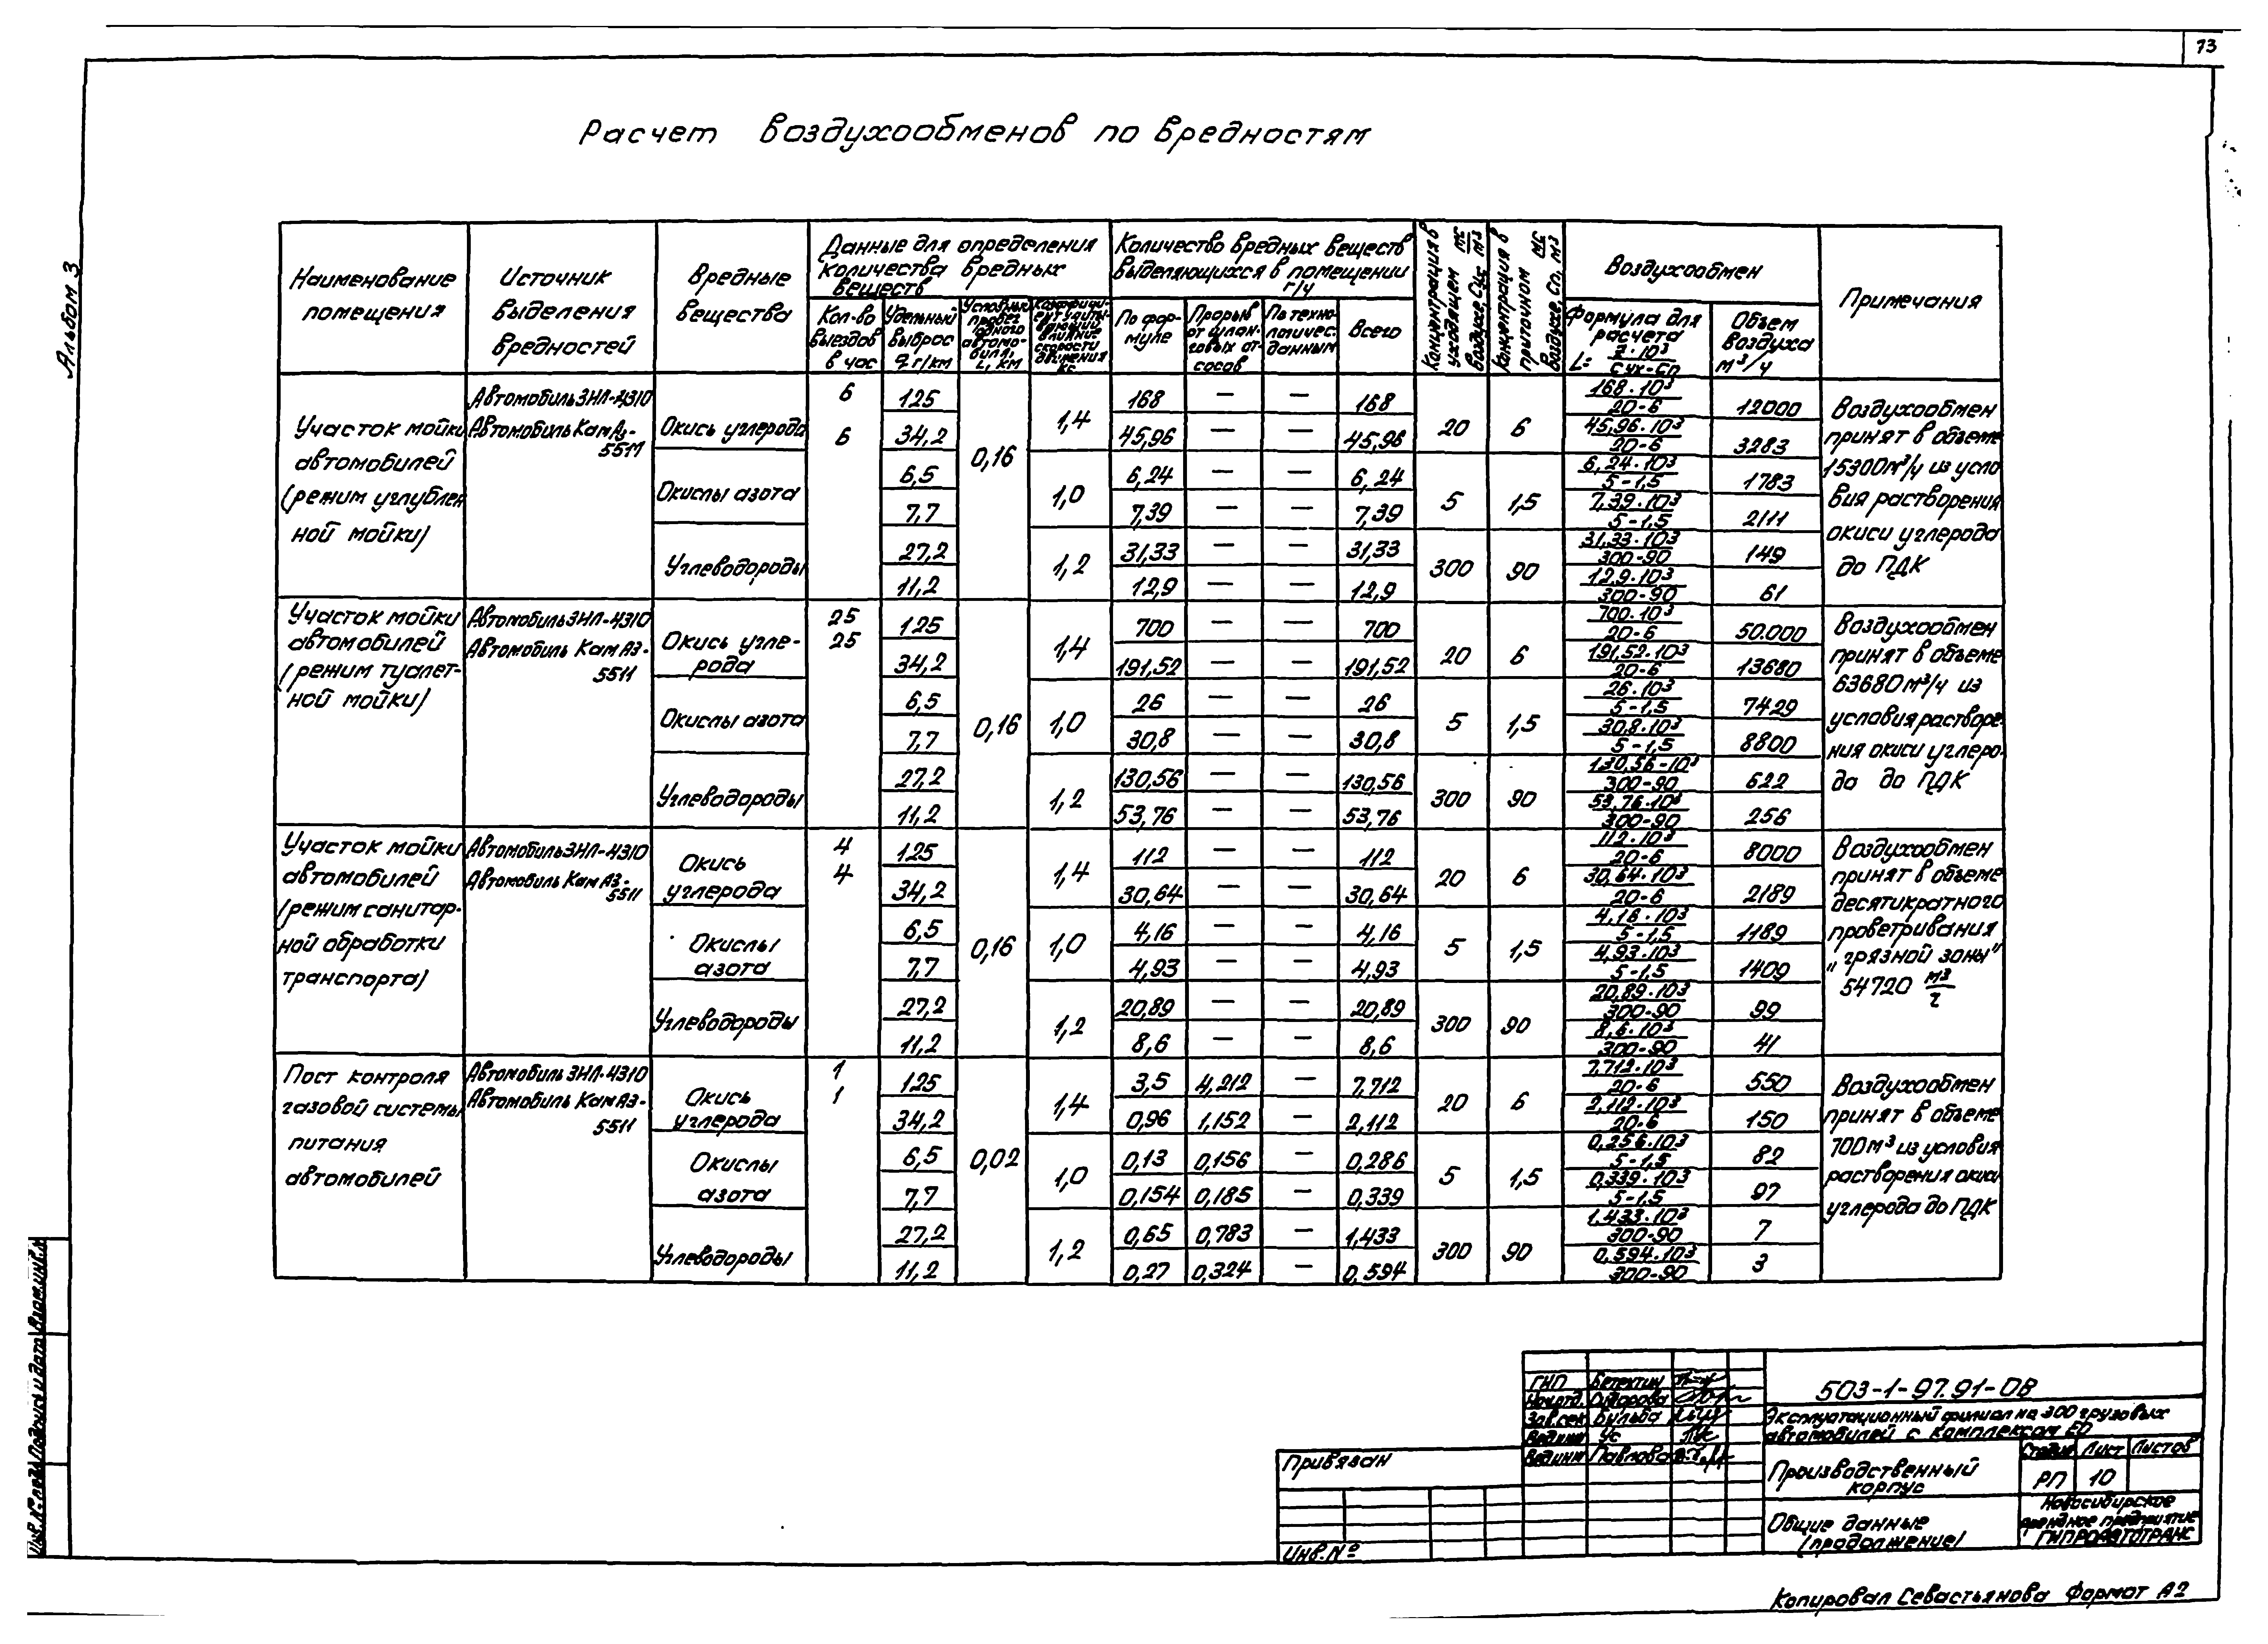 13
Альбом 3
Расчет воздухообменов по вредностям
Наименование помещения
Источник выделения вредностей
Вредные вещества
Данные для определения количества вредных веществ
Кол-во выездов в час
Удельный выброс q г/км
Условный пробег 1 одного автомобиля, L, км
Коэффициент учитывающий влияние скорости движения Кс
Количество вредных веществ выделяющихся в помещении г/ч
По формуле
Прорыв от шланговых отсосов
По технологичес. данным
Всего
Концентрация в уходящем воздухе, Сух мг/м3
Концентрация в приточном воздухе, Сп, мг/м3
Воздухообмен
Формула для расчета L= z·10³/Сух-Сп
Объем воздуха м³/ч
Примечания
Участок мойки автомобилей (режим углубленной мойки)
Автомобиль ЗИЛ-4310
Автомобиль КамАз-5511
6
6
0,16
Окись углерода 1,4 20 6
125 168 — — 168 168·10³/20-6 12000
34,2 45,96 — — 45,96 45,96·10³/20-6 3283
Окислы азота 1,0 5 1,5
6,5 6,24 — — 6,24 6,24·10³/5-1,5 1783
7,7 7,39 — — 7,39 7,39·10³/5-1,5 2111
Углеводороды 1,2 300 90
27,2 31,33 — — 31,33 31,33·10³/300-90 149
11,2 12,9 — — 12,9 12,9·10³/300-90 61
Воздухообмен
принят в объеме
15300м³/ч из усло
вия растворения
окиси углерода
до ПДК
Участок мойки автомобилей (режим туалетной мойки)
Автомобиль ЗИЛ-4310
Автомобиль КамАЗ-5511
25
25
0,16
Окись углерода 1,4 20 6
125 700 — — 700 700·10³/20-6 50.000
34,2 191,52 — — 191,52 191,52·10³/20-6 13680
Окислы азота 1,0 5 1,5
6,5 26 — — 26 26·10³/5-1,5 7429
7,7 30,8 — — 30,8 30,8·10³/5-1,5 8800
Углеводороды 1,2 300 90
27,2 130,56 — — 130,56 130,56-10³/300-90 622
11,2 53,76 — — 53,76 53,76·10³/300-90 256
Воздухообмен
принят в объеме
63680м³/ч из
условия растворе-
ния окиси углеро-
да до ПДК
Участок мойки автомобилей (режим санитарной обработки транспорта)
Автомобиль ЗИЛ-4310
Автомобиль КамАЗ-5511
4
4
0,16
Окись углерода 1,4 20 6
125 112 — — 112 112·10³/20-6 8000
34,2 30,64 — — 30,64 30,64·10³/20-6 2189
Окислы азота 1,0 5 1,5
6,5 4,16 — — 4,16 4,16·10³/5-1,5 1189
7,7 4,93 — — 4,93 4,93·10³/5-1,5 1409
Углеводороды 1,2 300 90
27,2 20,89 — — 20,89 20,89·10³/300-90 99
11,2 8,6 — — 8,6 8,6·10³/300-90 41
Воздухообмен
принят в объеме
десятикратного
проветривания
"грязной зоны"
54720 м³/ч
Пост контроля газовой системы питания автомобилей
Автомобиль ЗИЛ-4310
Автомобиль КамАЗ-5511
1
1
0,02
Окись углерода 1,4 20 6
125 3,5 4,212 — 7,712 7,712·10³/20-6 550
34,2 0,96 1,152 — 2,112 2,112·10³/20-6 150
Окислы азота 1,0 5 1,5
6,5 0,13 0,156 — 0,286 0,256·10³/5-1,5 82
7,7 0,154 0,185 — 0,339 0,339·10³/5-1,5 97
Углеводороды 1,2 300 90
27,2 0,65 0,783 — 1,433 1,433·10³/300-90 7
11,2 0,27 0,324 — 0,594 0,594·10³/300-90 3
Воздухообмен
принят в объеме
700м³ из условия
растворения окиси
углерода до ПДК
Инв.№ подл. Подпись и дата Взам.инв.№
Привязан
Инв.№
ГИП Бетехтин
Нач.отд. Сидорова
Зав.сек. Бульба
Вединж Ус
Вединж Павлова
503-1-97.91-ОВ
Эксплуатационный филиал на 300 грузовых
автомобилей с комплексом ЕО
Производственный
корпус
Стадия Лист Листов
РП 10
Общие данные
(продолжение)
Новосибирское
арендное предприятие
ГИПРОАВТОТРАНС
Копировал Севастьянова Формат А2